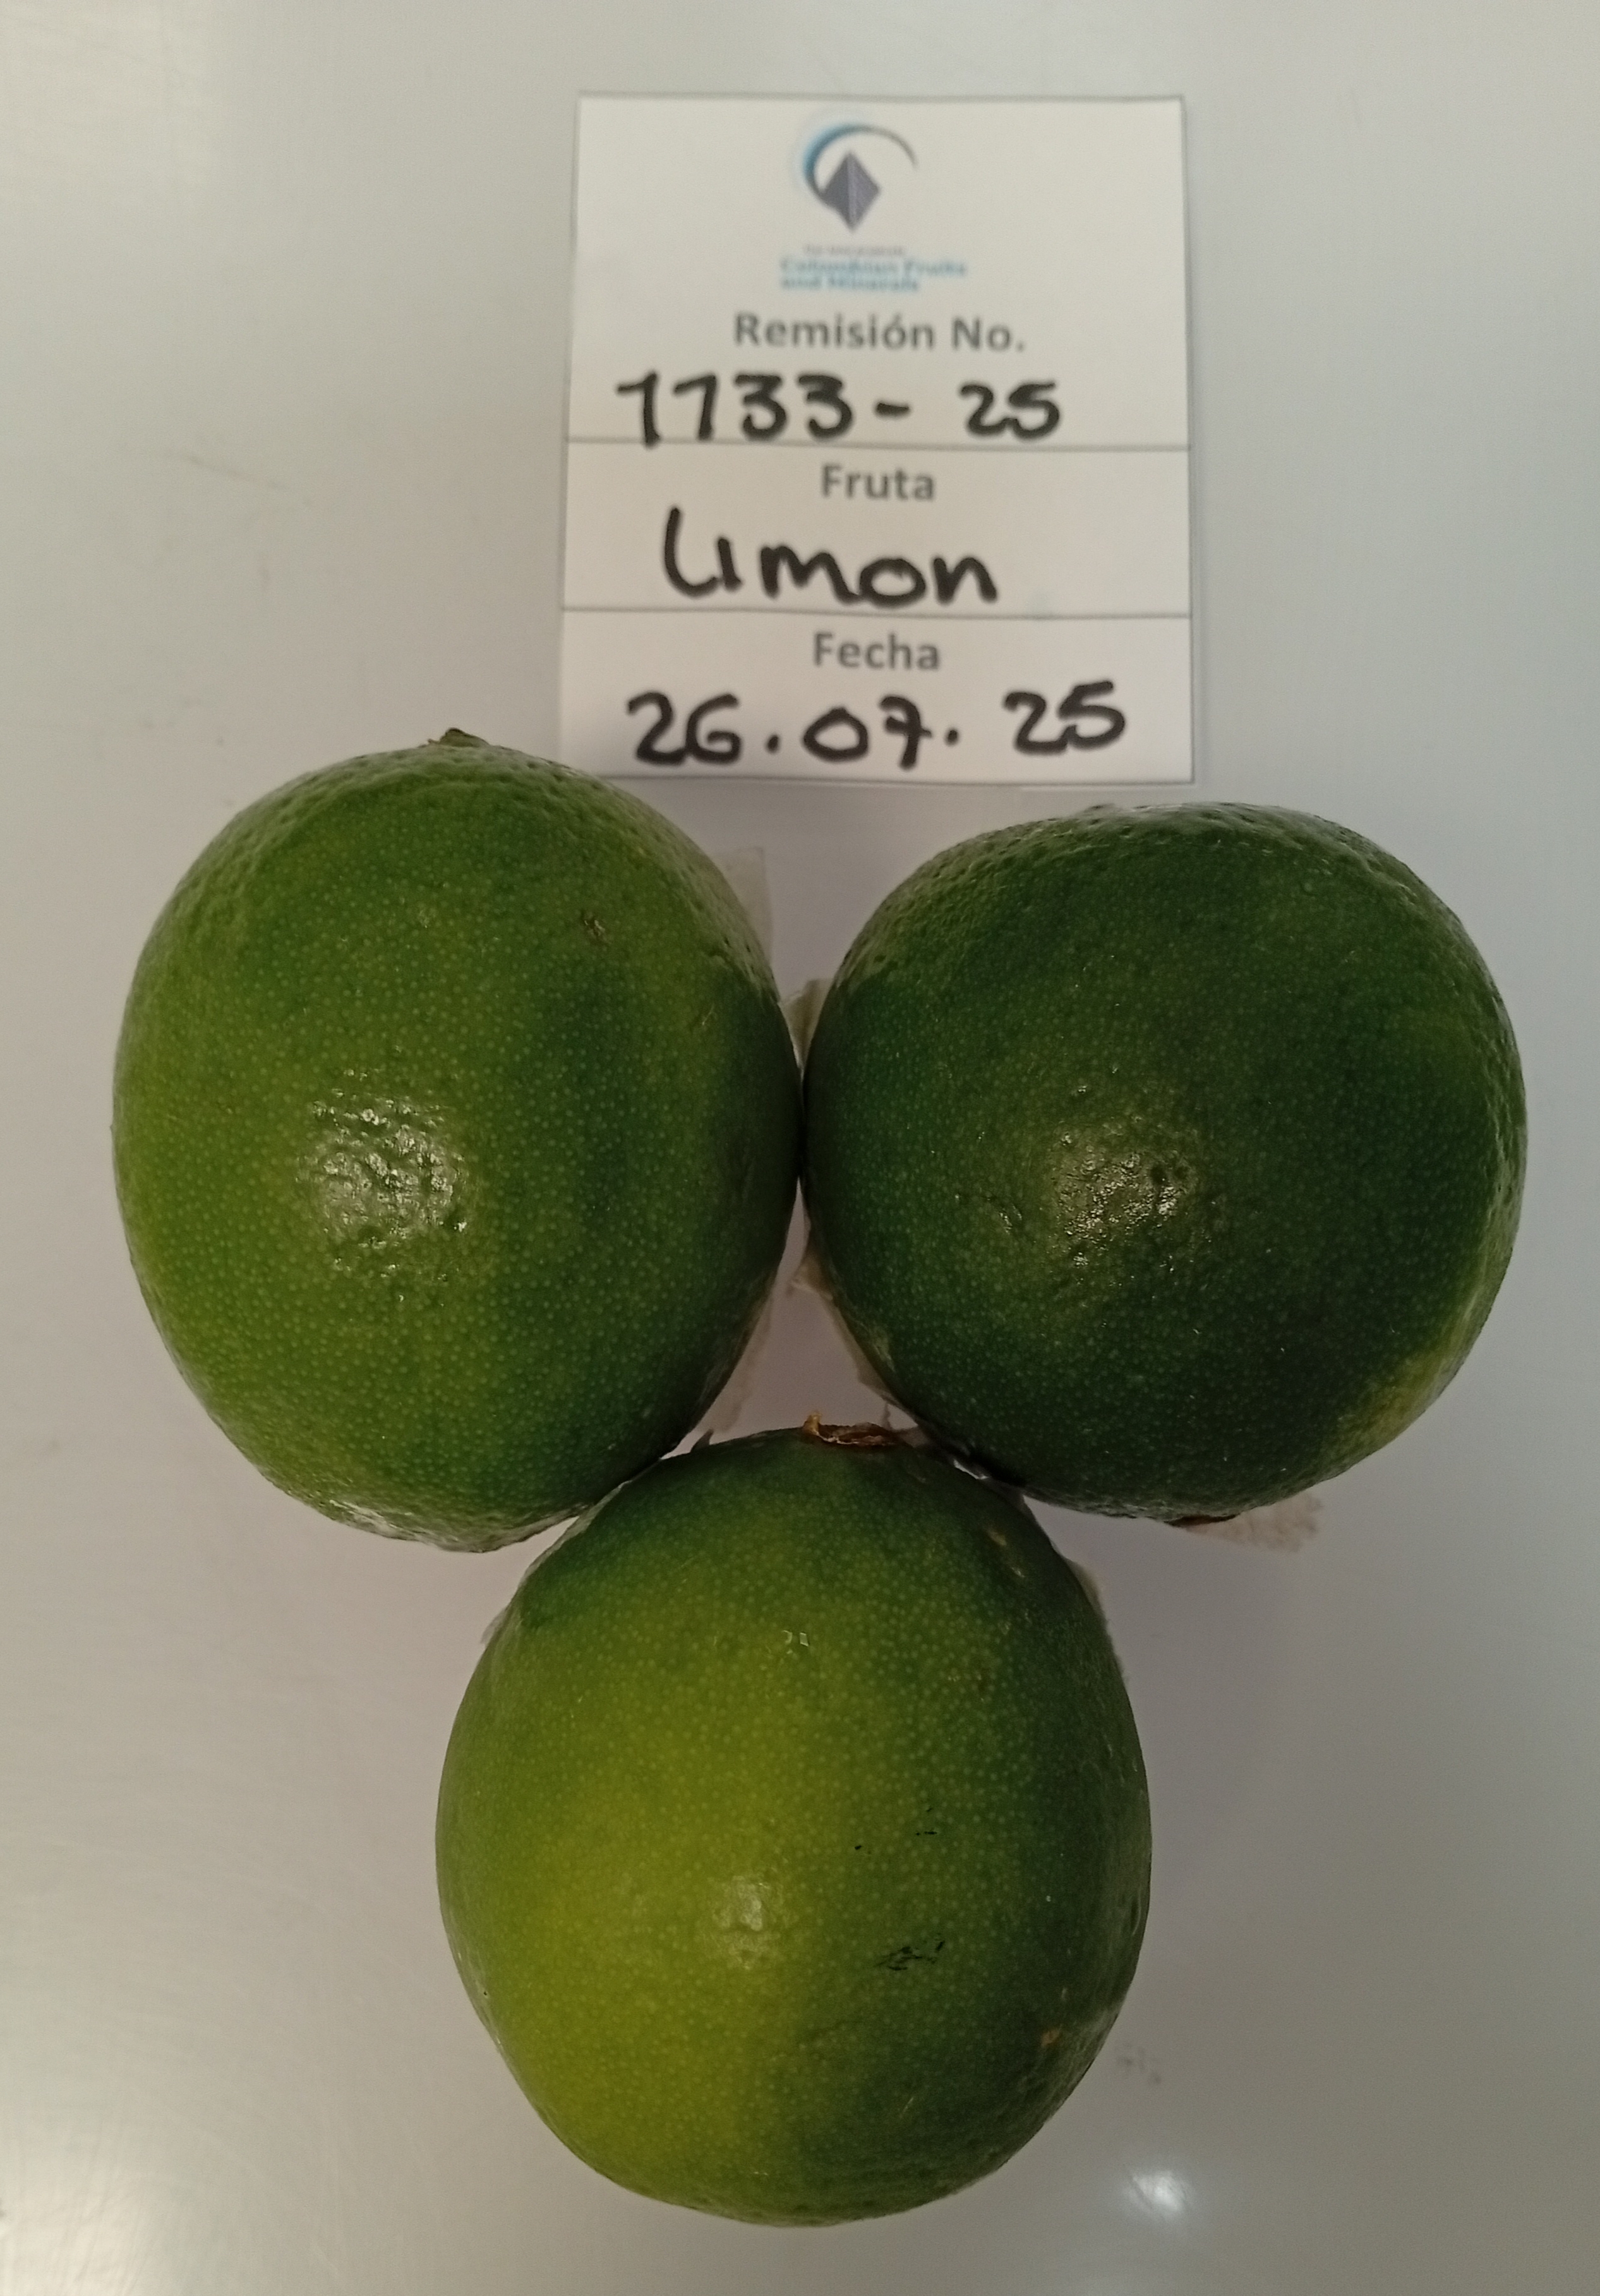 Colombian Fruits
and Minerals
Remisión No.
1133-25
Fruta
Limon
Fecha
26.07.25